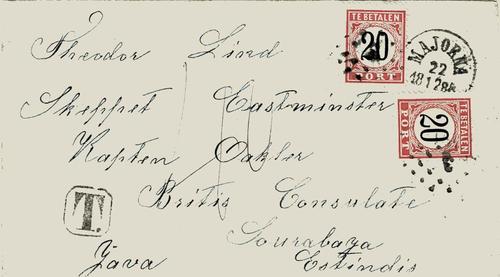 TE BETALEN
20
PORT
MAJORNA
22
18 12 84
TE BETALEN
20
PORT
Theodor Lind
Skeppet Eastminster
Kapten Oakler
Britis Consulate
T.
Sourabaya
Java Estindis